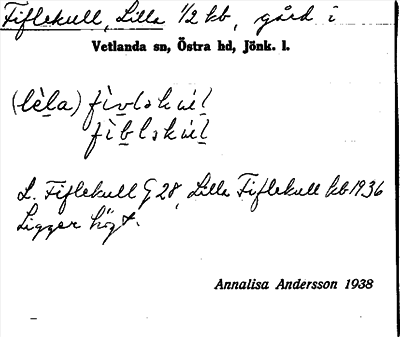 Fiflekull, Lilla 1/2 kb, gård i
Vetlanda sn, Östra hd, Jönk. l.
(lèla) fìvləkúl
fìbləkúl
L. Fiflekull G 28, Lilla Fiflekull kb 1936
Ligger högt.
Annalisa Andersson 1938